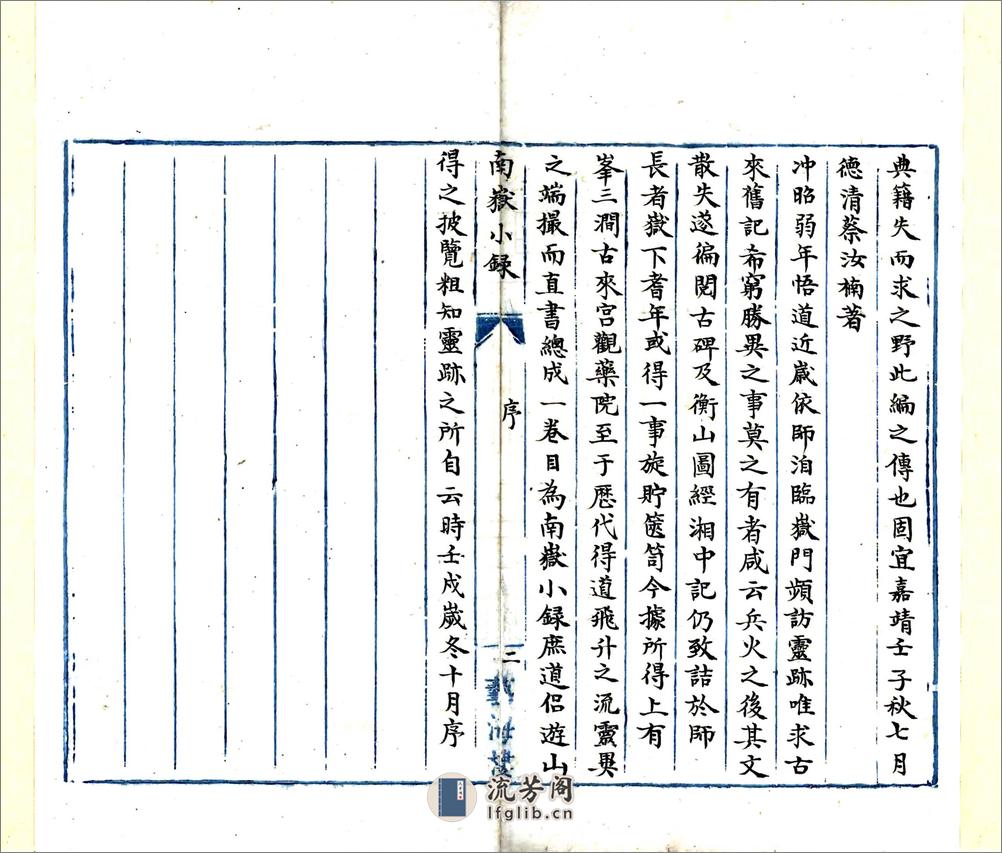 典籍失而求之野此編之傳也固宜嘉靖壬子秋七月
德清蔡汝楠著
冲昭弱年悟道近歲依師洎臨嶽門頻訪靈跡唯求古
來舊記希窮勝異之事莫之有者咸云兵火之後其文
散失遂徧閱古碑及衡山圖經湘中記仍致詰於師
長者嶽下耆年或得一事旋貯篋笥今據所得上有
峯三澗古來宮觀藥院至于歷代得道飛升之流靈異
之端撮而直書總成一卷目為南嶽小録庶道侣遊山
南嶽小録
序
二
藝海樓
得之披覽粗知靈跡之所自云時壬戌歲冬十月序
流芳阁
lfglib.cn